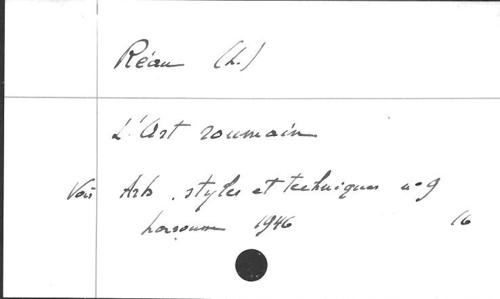 Réau (L.)
L'Art roumain
Voir Arts, styles et techniques n° 9
Larousse 1946 16